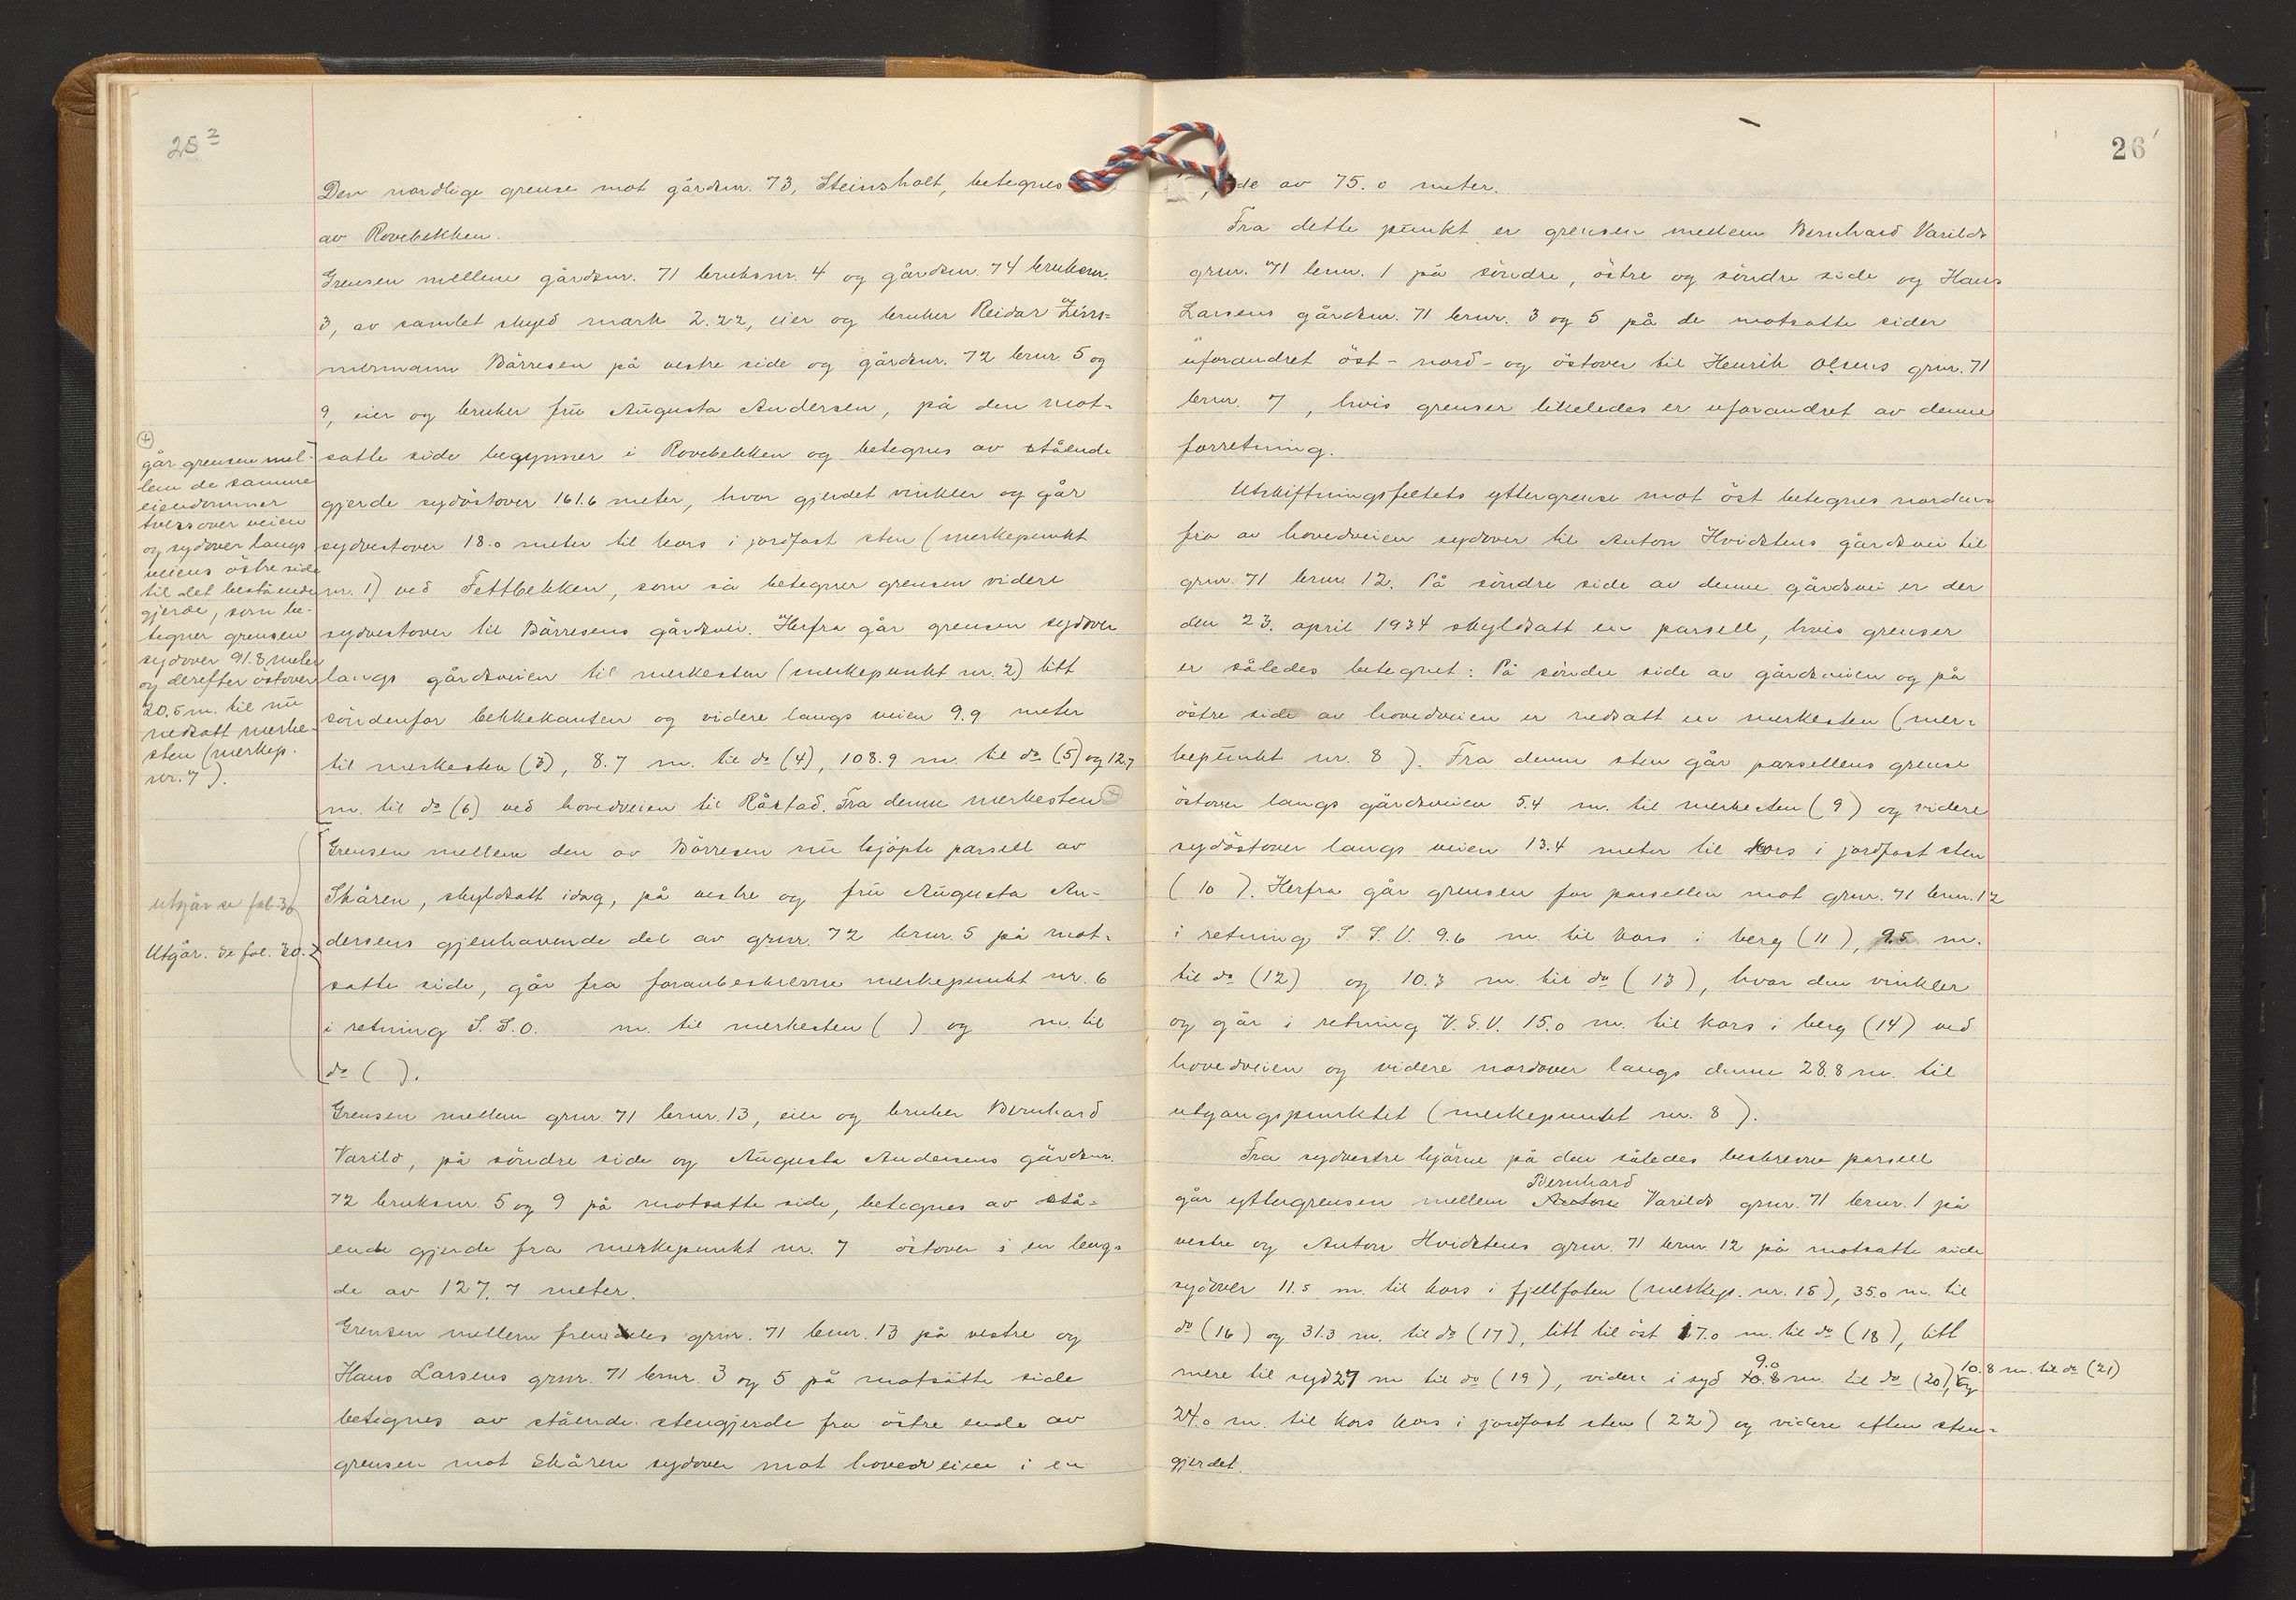 25²
Den nordlige grense mot gårdsnr. 73, Steinsholt, betegnes
av Rovebekken.
Grensen mellem gårdsnr. 71 bruksnr. 4 og gårdsnr. 74 bruksnr.
3, av samlet skyld mark 2.22, eier og bruker Reidar Zim=
mermann Børresen på vestre side og gårdsnr. 72 brnr. 5 og
9, eier og bruker frü Aügusta Andersen, på den mot-
satte side begynner i Rovebekken og betegnes av stående
gjerde sydöstover 161.6 meter, hvor gjerdet vinkler og går
sydvestover 18.0 meter til kors i jordfast sten (merkepunkt
nr. 1) ved Tettbekken, som så betegner grensen videre
sydvestover til Börresens gårdsvei. Herfra går grensen sydover
langs gårdsveien til merkesten (merkepunkt nr. 2) litt
söndenfor bekkekanten og videre langs veien 9.9 meter
til merkesten (3), 8.7 m. til do (4), 108.9 m. til do (5) og 12.7
m. til do (6) ved hovedveien til Råstad. Fra denne merkesten (+)
(+)
går grensen mel-
lem de samme
eiendommer
tvers over veien
og sydover langs
veiens östre side
til det bestående
gjerde, som be-
tegner grensen
sydover 91.8 meter
og derefter östover
20.5 m. til nü
nedsatt merke-
sten (merkep.
nr. 7).
Grensen mellem den av Börresen nü kjöpte parsell av
Skåren, skyldsatt idag, på vestre og frü Aügusta An-
dersens gjenhavende del av grnr. 72 brnr. 5 på mot-
satte side, går fra foranbeskrevne merkepunkt nr. 6
i retning S. S. O. m. til merkesten ( ) og m. til
do ( ).
utgår se fol. 30
Utgår. Se fol. 30.2
Grensen mellem grnr. 71 brnr. 13, eier og bruker Bernhard
Varild, på söndre side og Aügusta Andersens gårdsnr.
72 bruksnr. 5 og 9 på motsatte side, betegnes av stå-
ende gjerde fra merkepunkt nr. 7 östover i en leng-
de av 127.7 meter.
Grensen mellem fremdeles grnr. 71 brnr. 13 på vestre og
Hans Larsens grnr. 71 brnr. 3 og 5 på motsatte side
betegnes av stående stengjerde fra östre ende av
grensen mot Skåren sydover mot hovedveien i en
26
de av 75.0 meter.
Fra dette pünkt er grensen mellem Bernhard Varilds
grnr. 71 brnr. 1 på söndre, östre og söndre side og Hans
Larsens gårdsnr. 71 brnr. 3 og 5 på de motsatte sider
uforandret öst- nord- og östover til Henrik Olsens grnr. 71
brnr. 7, hvis grenser likeledes er uforandret av denne
forretning.
Utskiftningsfeltets yttergrense mot öst betegnes norden=
fra av hovedveien sydover til Anton Hvidstens gårdsvei til
grnr. 71 brnr. 12. På söndre side av denne gårdsvei er der
den 23. april 1934 skyldsatt en parsell, hvis grenser
er således betegnet: På söndre side av gårdsveien og på
östre side av hovedveien er nedsatt en merkesten (mer=
kepünkt nr. 8). Fra denne sten går parsellens grense
östover langs gårdsveien 5.4 m. til merkesten (9) og videre
sydöstover langs veien 13.4 meter til kors i jordfast sten
(10). Herfra går grensen for parsellen mot grnr. 71 brnr. 12
i retning S. S. V. 9.6 m. til kors i berg (11), 9.5 m.
til do (12) og 10.3 m. til do (13), hvor den vinkler
og går i retning V. S. V. 15.0 m. til kors i berg (14) ved
hovedveien og videre nordover langs denne 28.8 m. til
utgangspunktet (merkepunkt nr. 8).
Fra sydvestre hjörne på den således beskrevne parsell
Bernhard
går yttergrensen mellem Anton Varilds grnr. 71 brnr. 1 på
vestre og Anton Hvidstens grnr. 71 brnr. 12 på motsatte side
sydover 11.5 m. til kors i fjellfoten (merkep. nr. 15), 35.0 m. til
do (16) og 31.3 m. til do (17), litt til öst 17.0 m. til do (18), litt
9.0
mere til syd 27 m til do (19), videre i syd 10.8 m. til do (20), og 10.8 m. til do (21)
24.0 m. til kors kors i jordfast sten (22) og videre efter sten=
gjerdet.